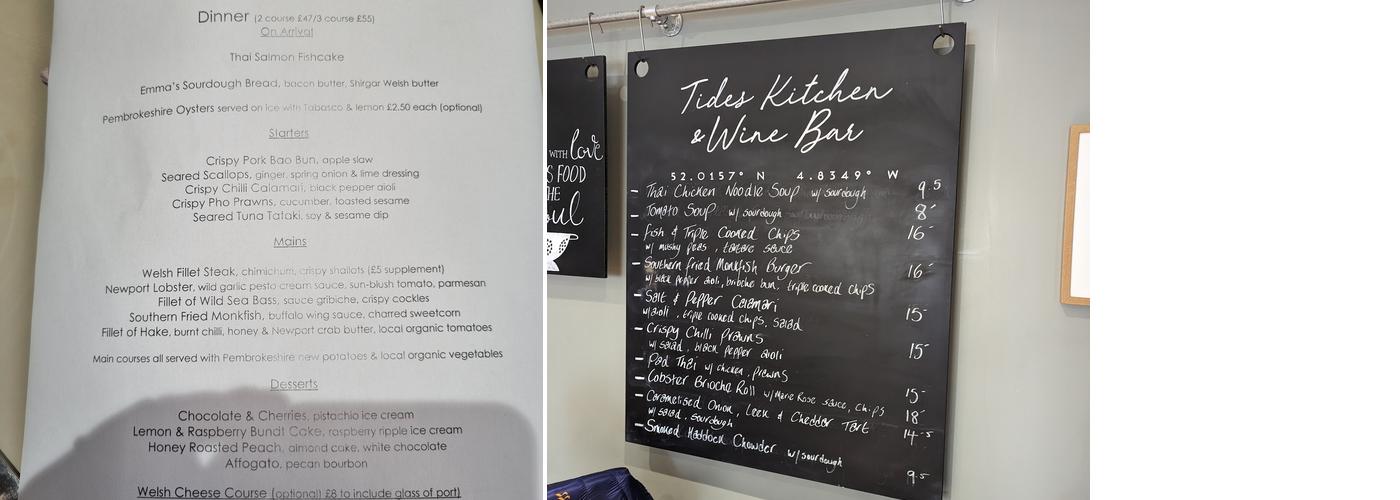 Dinner (2 course £47/3 course £55)
On Arrival
Thai Salmon Fishcake
Emma's Sourdough Bread, bacon butter, Shirgar Welsh butter
Pembrokeshire Oysters served on ice with Tabasco & lemon £2.50 each (optional)
Starters
Crispy Pork Bao Bun, apple slaw
Seared Scallops, ginger, spring onion & lime dressing
Crispy Chilli Calamari, black pepper aioli
Crispy Pho Prawns, cucumber, toasted sesame
Seared Tuna Tataki, soy & sesame dip
Mains
Welsh Fillet Steak, chimichurri, crispy shallots (£5 supplement)
Newport Lobster, wild garlic pesto cream sauce, sun-blush tomato, parmesan
Fillet of Wild Sea Bass, sauce gribiche, crispy cockles
Southern Fried Monkfish, buffalo wing sauce, charred sweetcorn
Fillet of Hake, burnt chilli, honey & Newport crab butter, local organic tomatoes
Main courses all served with Pembrokeshire new potatoes & local organic vegetables
Desserts
Chocolate & Cherries, pistachio ice cream
Lemon & Raspberry Bundt Cake, raspberry ripple ice cream
Honey Roasted Peach, almond cake, white chocolate
Affogato, pecan bourbon
Welsh Cheese Course (optional) £8 to include glass of port)
WITH love
FOOD
Tides Kitchen
& Wine Bar
52.0157° N 4.8349° W
- Thai Chicken Noodle Soup w/ sourdough 9.5
- Tomato Soup w/ sourdough 8-
- Fish & Triple Cooked Chips 16-
w/ mushy peas, tartare sauce
- Southern fried Monkfish Burger 16-
w/ black pepper aioli, brioche bun, triple cooked chips
- Salt & Pepper Calamari 15-
w/ aioli, triple cooked chips, salad
- Crispy Chilli Prawns 15-
w/ salad, black pepper aioli
- Pad Thai w/ chicken, prawns 15-
- Lobster Brioche Roll w/ Marie Rose sauce, chips 18-
- Caramelised Onion, Leek & Cheddar Tart 14-5
w/ salad, sourdough
- Smoked Haddock Chowder w/ sourdough 9.5